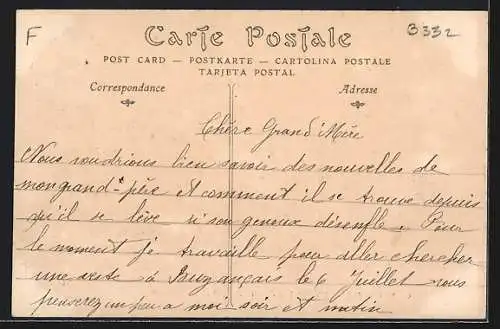 F
B332
Carte Postale
POST CARD — POSTKARTE — CARTOLINA POSTALE
TARJETA POSTAL
Correspondance
Adresse
Chère Grand'Mère
Nous voudrions bien savoir des nouvelles de
mon grand-père et comment il se trouve depuis
qu'il se lève si son genoux désenfle. Pour
le moment je travaille pour aller chercher
une veste à Buzançais le 6 Juillet vous
penserez un peu a moi soir et matin